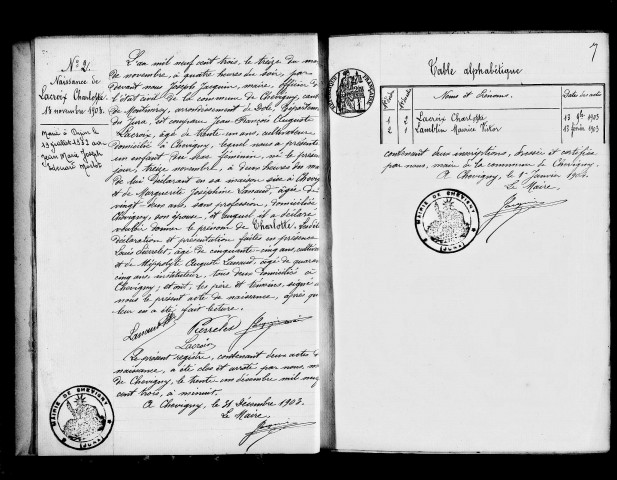 N° 2.
Naissance de
Lacroix Charlotte
13 novembre 1903.
Marié à Dijon le
19 juillet 1932 avec
Jean Marie Joseph
L'an mil neuf cent trois, le treize du mois
de novembre, à quatre heures du soir, par
devant nous Joseph Jacquin, maire, officier de
l'état civil de la commune de Chevigny, canton
de Montmirey, arrondissement de Dole, département
du Jura, est comparu Jean François Auguste
Lacroix, âgé de trente un ans, cultivateur
domicilié à Chevigny, lequel nous a présenté
un enfant du sexe féminin, né le présent
jour, treize novembre, à deux heures du
de lui déclarant en sa maison sise à Chevigny
et de Marguerite Joséphine Lanaud, âgée de
vingt- ans, sans profession, domiciliée
Chevigny, son épouse; et auquel il a déclaré
vouloir donner le prénom de Charlotte. Lesdites
déclaration et présentation faites en présence
Louis Pierrelet, âgé de cinquante-cinq ans, cultivateur
et de Hippolyte Auguste Lanaud, âgé de quarante
cinq ans, instituteur, tous deux domiciliés à
Chevigny; et ont, les père et témoins, signé avec
nous le présent acte de naissance, après que
leur en a été fait lecture.
Lanaud Pierrelet
Lacroix
Le présent registre, contenant deux actes de
naissance, a été clos et arrêté par nous, maire
de Chevigny, le trente un décembre mil neuf
cent trois, à minuit.
A Chevigny, le 31 Décembre 1903.
Le Maire,
MAIRIE DE CHEVIGNY
(JURA)
7
RÉPUBLIQUE FRANÇAISE
Table alphabétique
Noms et Prénoms. Dates des actes
1 2 Lacroix Charlotte 13 9bre 1903
2 1 Lamblin Maurice Victor 13 février 1903
contenant deux inscriptions, dressée et certifiée
par nous, maire de la commune de Chevigny.
A Chevigny, le 1er Janvier 1904.
Le Maire,
MAIRIE DE CHEVIGNY
(JURA)